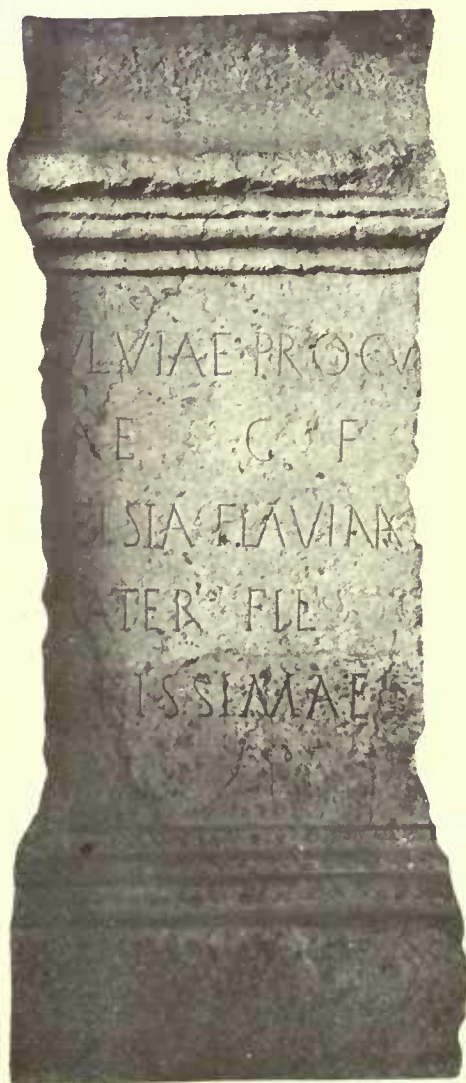 VLVIAE PROCV
AE C F
SIA FLAVINA
ATER FIL
ISSIMAE